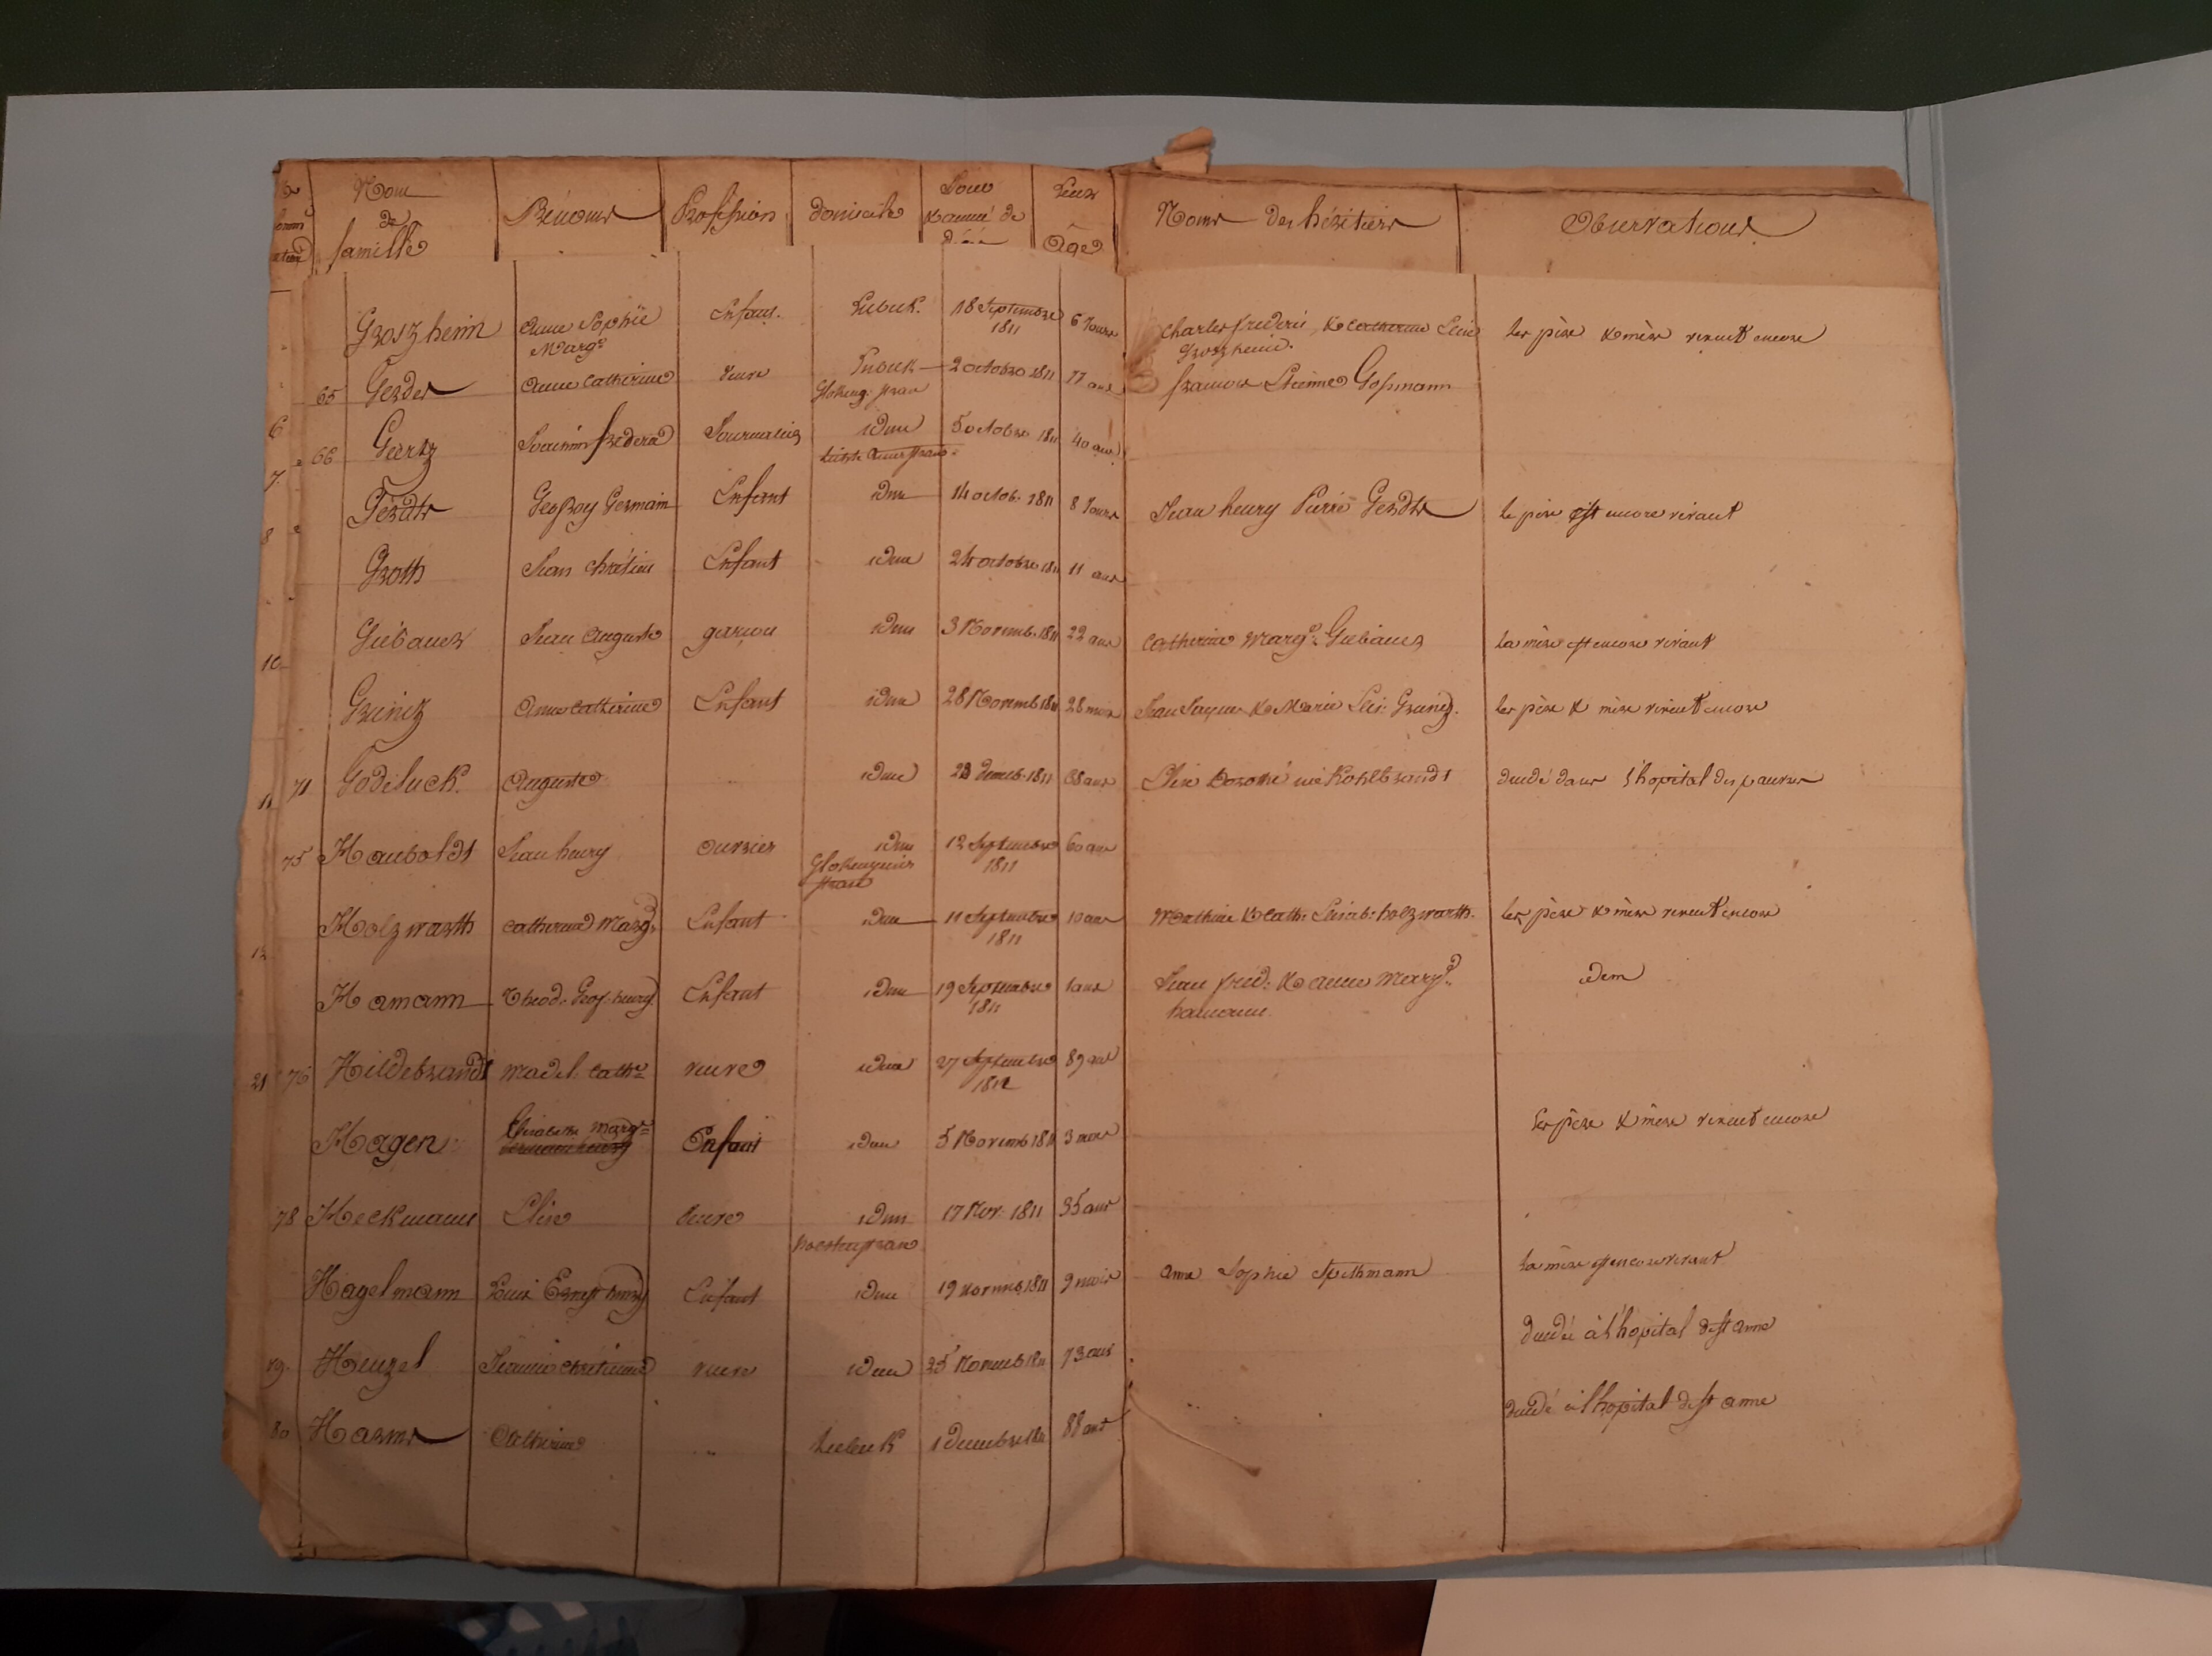 Nom de famille Prénoms Profession domicile Jour & année de Âge Noms des héritiers Observations
Groszheim Anne Sophie Marg.e Enfant. Lubeck. 18 Septembre 1811 6 Jours Charles frederic & Catherine Groszheim. les père & mère vivent encore
65 Gerder Anne Catherine veuve 2 octobre 1811 77 ans francois Etienne Goßmann
66 Geertz Joachim frederic Journalier idem 5 octobre 1811 40 ans
Gerdts Geofroy Germain Enfant idem 14 octob. 1811 8 Jours Jean henry Pierre Gerdts le père est encore vivant
Groth Jean chrétien Enfant idem 24 octobre 1811 11 ans
Giebauer Jean Auguste garçon idem 3 Novemb. 1811 22 ans Catherine Marg.e Giebauer la mère est encore vivant
Greinitz Anne Catherine Enfant idem 28 Novemb 1811 28 mois Jean Jaques & Marie les père & mère vivent encore
71 Godeluck. Auguste idem decemb. 1811 ans née Kohlbrandt decedé dans l'hopital des pauvres
75 Hauboldt Jean henry ouvrier idem 12 Septembre 1811 60 ans
Holzwarth Catherine Marg. Enfant idem 11 Septembre 1811 10 ans & Cath. Holzwarth. les père & mère vivent encore
Hamann Theod. Geof. henry Enfant idem 19 Septembre 1811 1 ans Jean fred. & Anne Marg.e hamann. idem
76 Hildebrandt Madel. Cath.e veuve idem 27 Septembre 89 ans
Hagen Elisabethe Marg.e Enfant idem 5 Novemb 1811 3 mois les père & mère vivent encore
78 Heckmann veuve idem 17 Nov. 1811 35 ans
Hagelmann Louis Ernest henry Enfant idem 19 novemb. 1811 9 mois anne Sophie Spethmann la mère est encore vivant
79. Henzel Jeanne Chrétienne veuve idem 25 Novemb 1811 73 ans decedé à l'hopital de st anne
80 Harms Catherine Lubeck 1 decembre 1811 88 ans decedé à l'hopital de st anne